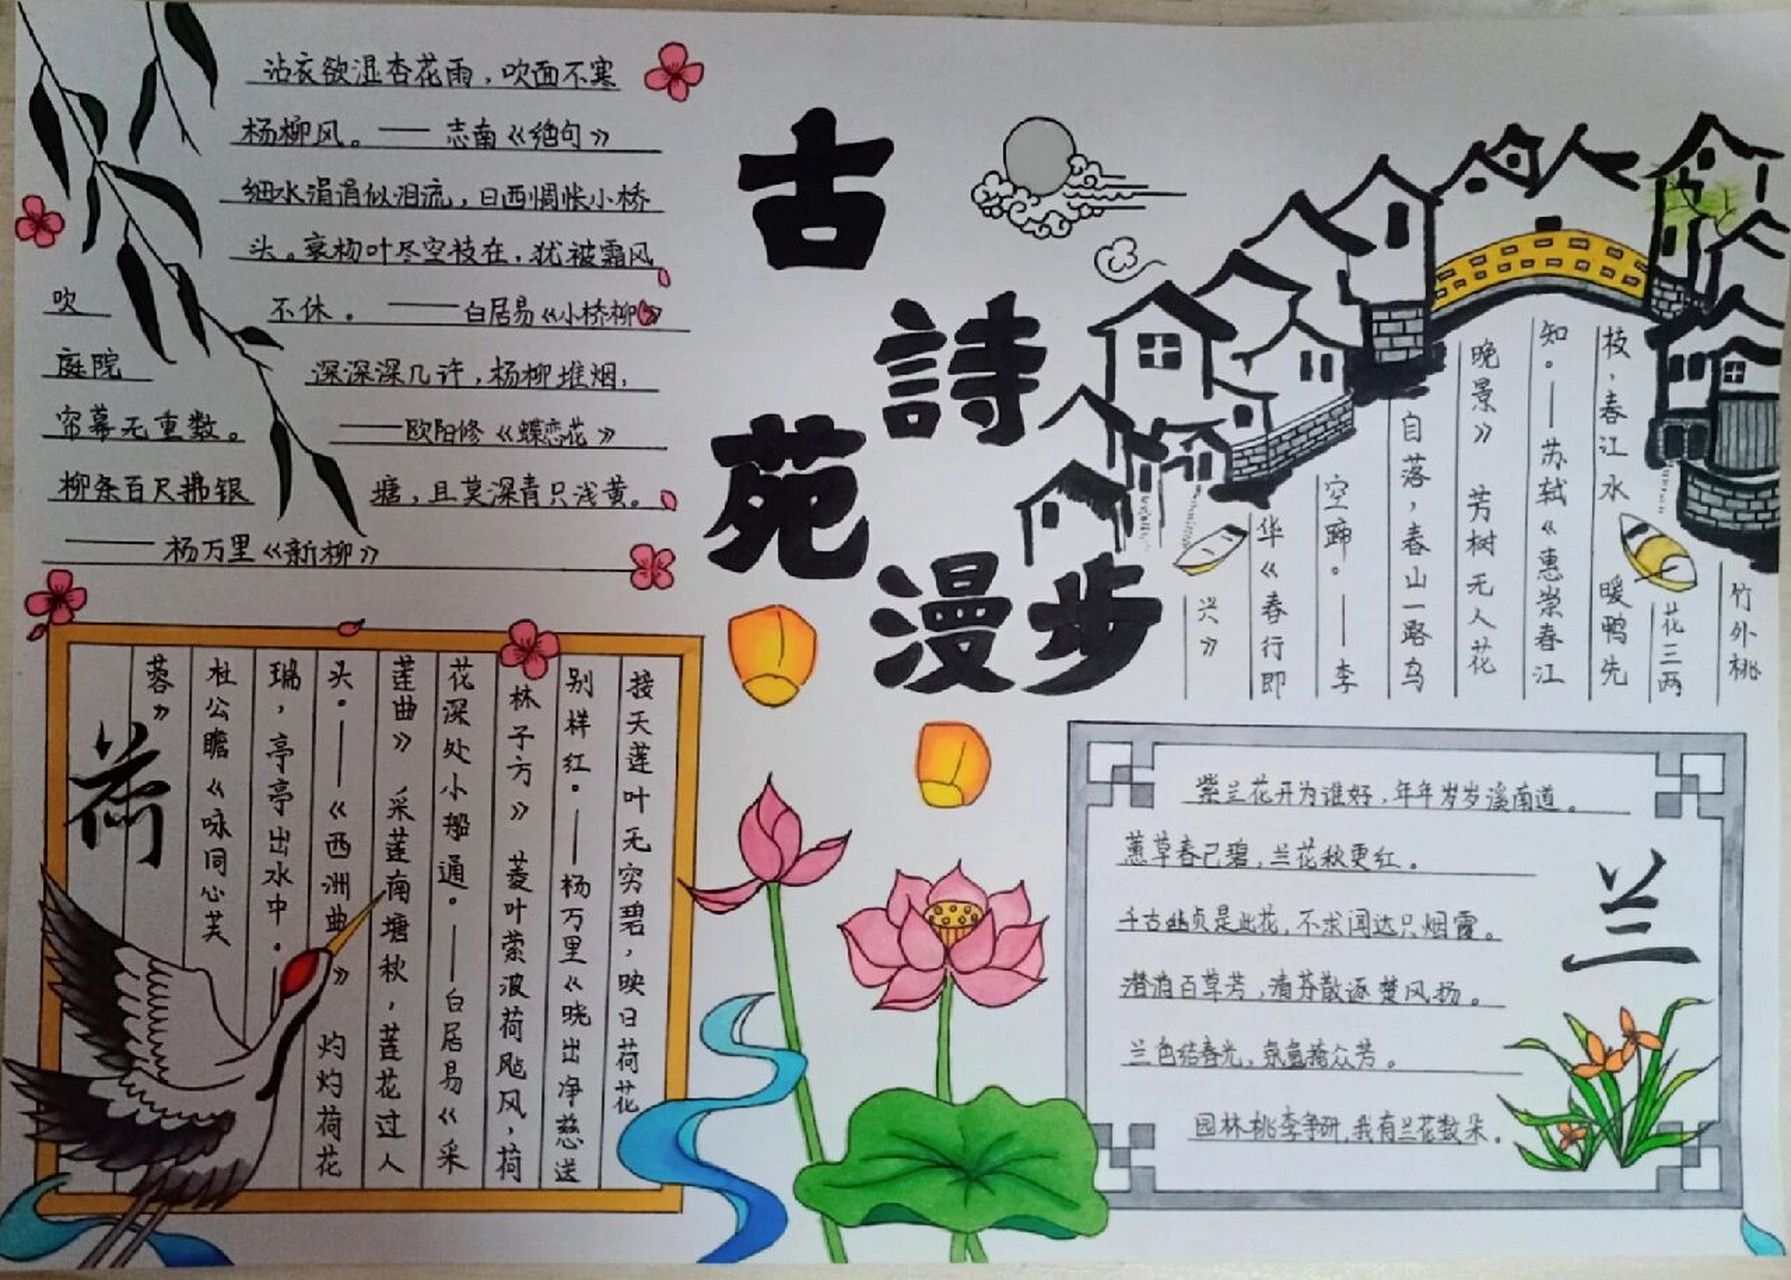 沾衣欲湿杏花雨，吹面不寒
杨柳风。——志南《绝句》
细水涓涓似泪流，日西惆怅小桥
头。衰杨叶尽空枝在，犹被霜风
吹
不休。——白居易《小桥柳》
庭院
深深深几许，杨柳堆烟，
帘幕无重数。
——欧阳修《蝶恋花》
柳条百尺拂银
塘，且莫深青只浅黄。
——杨万里《新柳》
古
詩
苑
漫步
竹外桃
花三两
枝，春江水
暖鸭先
知。——苏轼《惠崇春江
晚景》
芳树无人花
自落，春山一路鸟
空蹄。——李
华《春行即
兴》
接天莲叶无穷碧，映日荷花
别样红。——杨万里《晓出净慈送
林子方》
菱叶萦波荷飐风，荷
花深处小船通。——白居易《采
莲曲》
采莲南塘秋，莲花过人
头。——《西洲曲》
灼灼荷花
瑞，亭亭出水中。—
杜公瞻《咏同心芙
蓉》
荷
紫兰花开为谁好，年年岁岁溪南道。
蕙草春已碧，兰花秋更红。
千古幽贞是此花，不求闻达只烟霞。
潜消百草芳，清芬散逐楚风扬。
兰色结春光，氛氲掩众芳。
园林桃李争研，我有兰花数朵。
兰